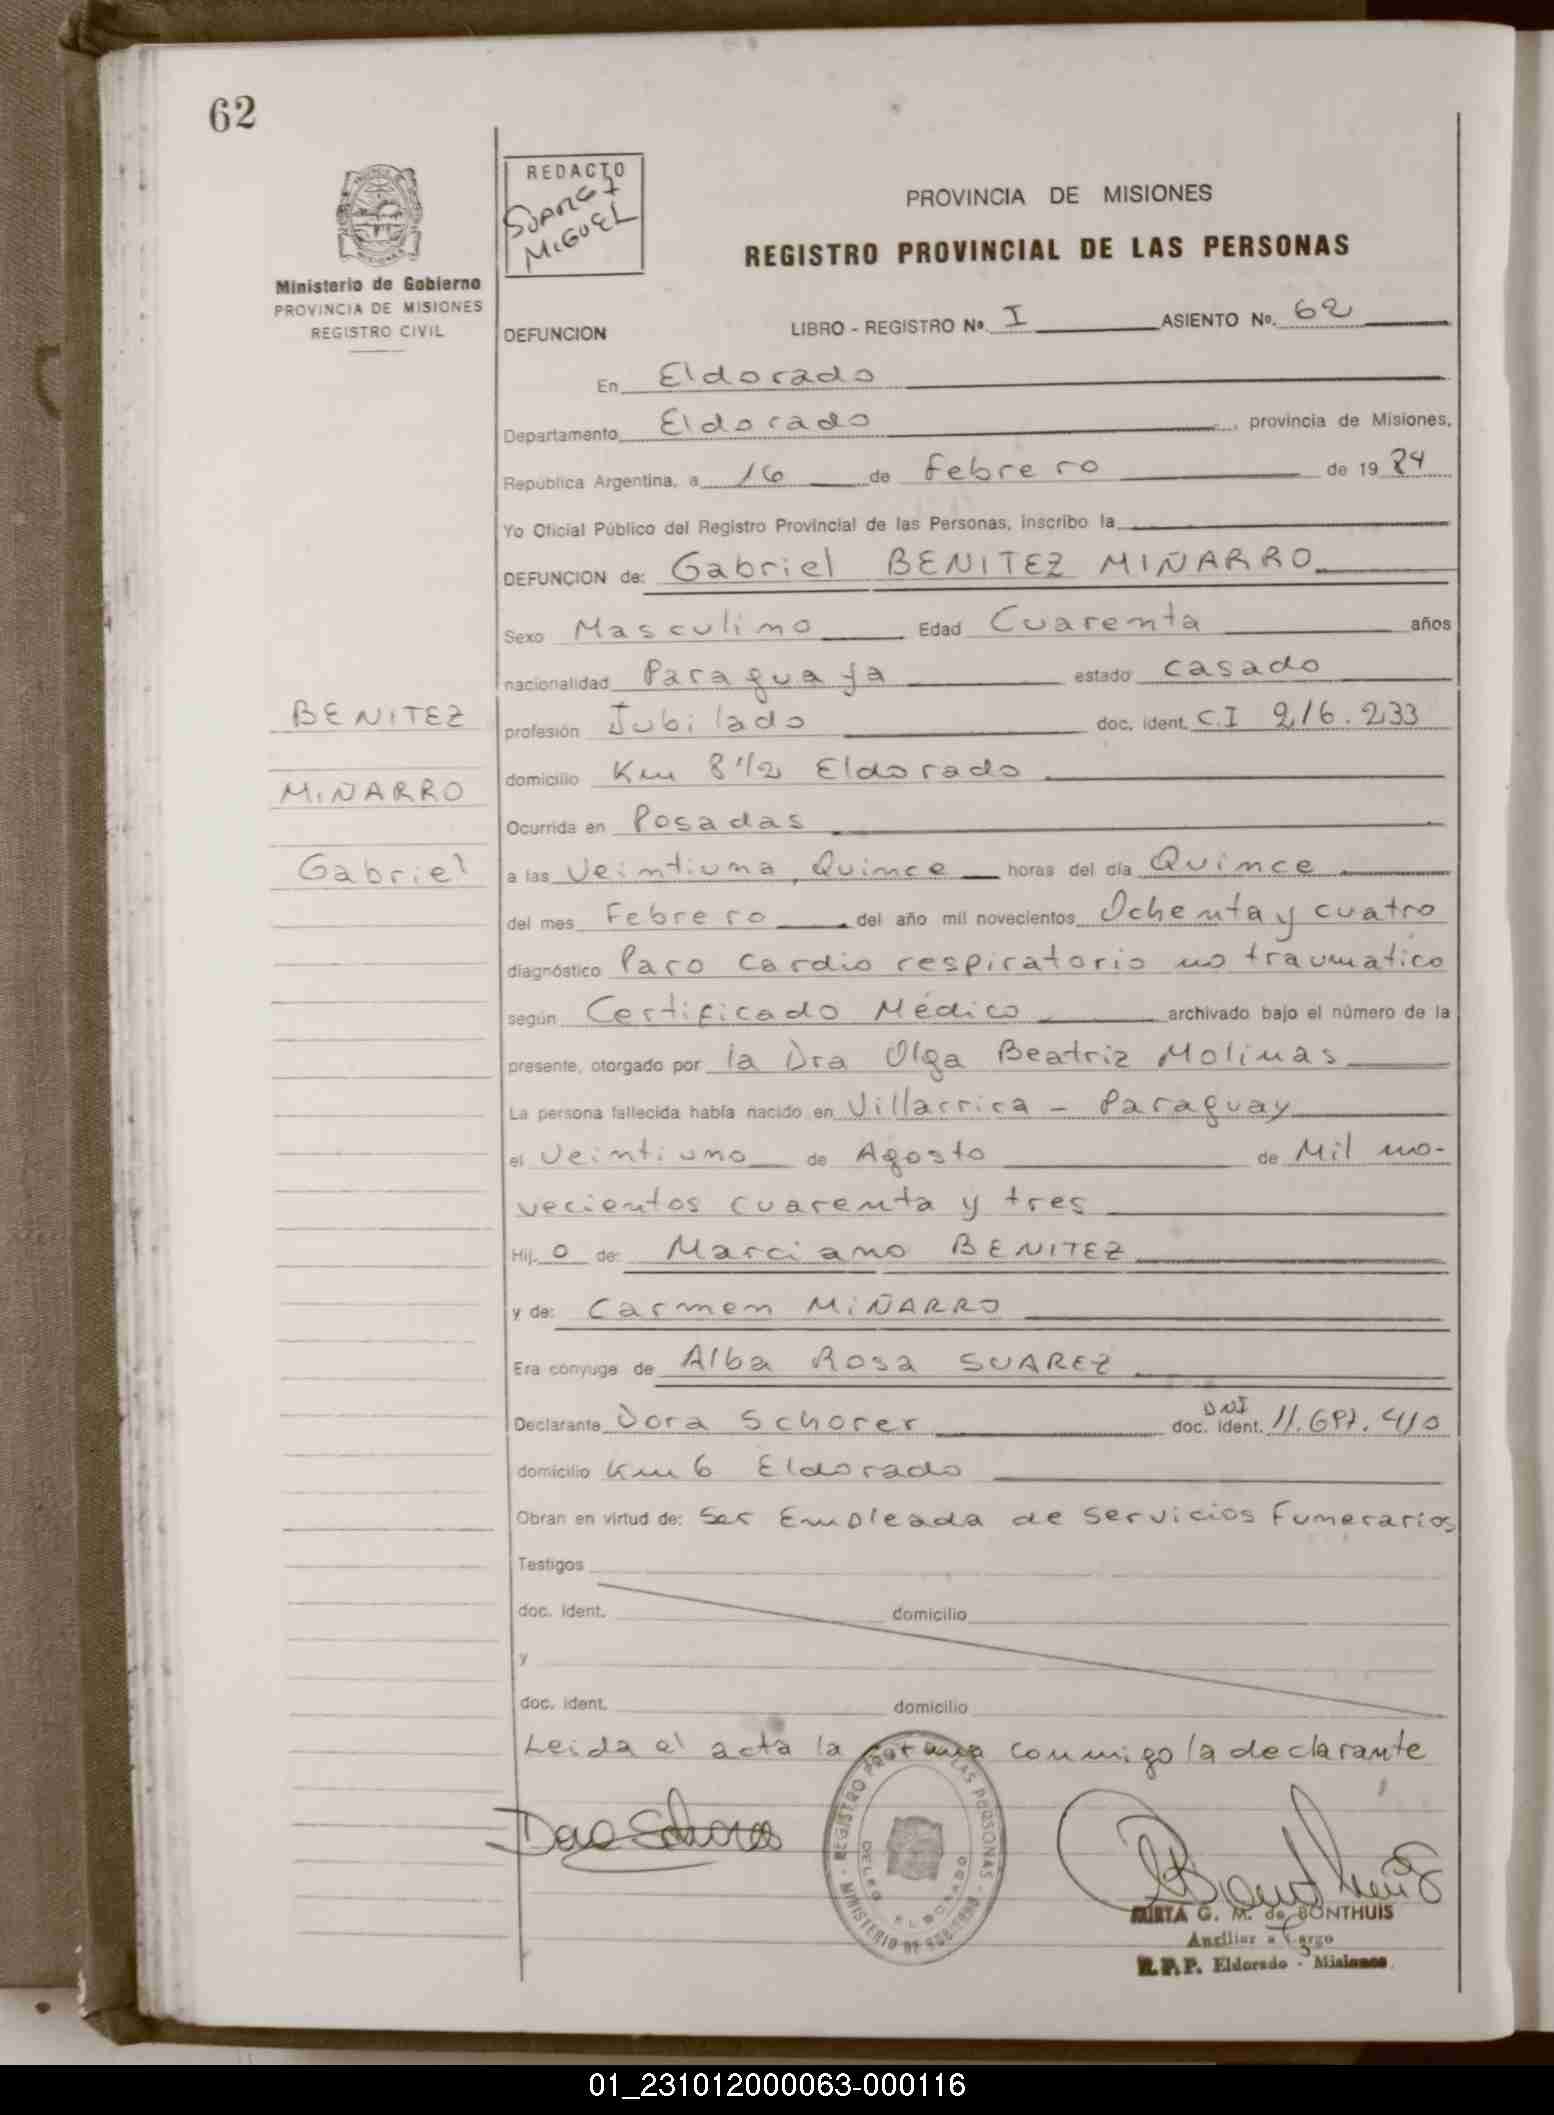 62
REDACTO
SUAREZ
MIGUEL
Ministerio de Gobierno
PROVINCIA DE MISIONES
REGISTRO CIVIL
PROVINCIA DE MISIONES
REGISTRO PROVINCIAL DE LAS PERSONAS
DEFUNCION LIBRO - REGISTRO Nº. I ASIENTO Nº. 62
En Eldorado
Departamento Eldorado, provincia de Misiones,
República Argentina, a 16 de Febrero de 19 84
Yo Oficial Público del Registro Provincial de las Personas, inscribo la
DEFUNCION de: Gabriel BENITEZ MIÑARRO
Sexo Masculino Edad Cuarenta años
nacionalidad Paraguaya estado casado
BENITEZ
profesión Jubilado doc. ident. C.I 216.233
domicilio Km 8 1/2 Eldorado
MIÑARRO
Ocurrida en Posadas
Gabriel
a las Veintiuna, Quince horas del día Quince
del mes Febrero del año mil novecientos Ochenta y cuatro
diagnóstico Paro cardio respiratorio no traumatico
según Certificado Médico archivado bajo el número de la
presente, otorgado por la Dra Olga Beatriz Molinas
La persona fallecida había nacido en Villarrica - Paraguay
el Veintiuno de Agosto de Mil no-
vecientos cuarenta y tres
Hij. o de: Marciano BENITEZ
y de: Carmen MIÑARRO
Era cónyuge de Alba Rosa SUAREZ
Declarante Dora Schorer doc. ident. DNI 11.697.410
domicilio Km 6 Eldorado
Obran en virtud de: Ser Empleada de Servicios Funerarios
Testigos
doc. ident. domicilio
y
doc. ident. domicilio
Leida el acta la firma conmigo la declarante
Dora Schorer
REGISTRO PROV. DE LAS PERSONAS - MINISTERIO DE GOBIERNO
DELEG. ELDORADO
MIRTA G. M. de BONTHUIS
Auxiliar a Cargo
R.P.P. Eldorado - Misiones
01_231012000063-000116